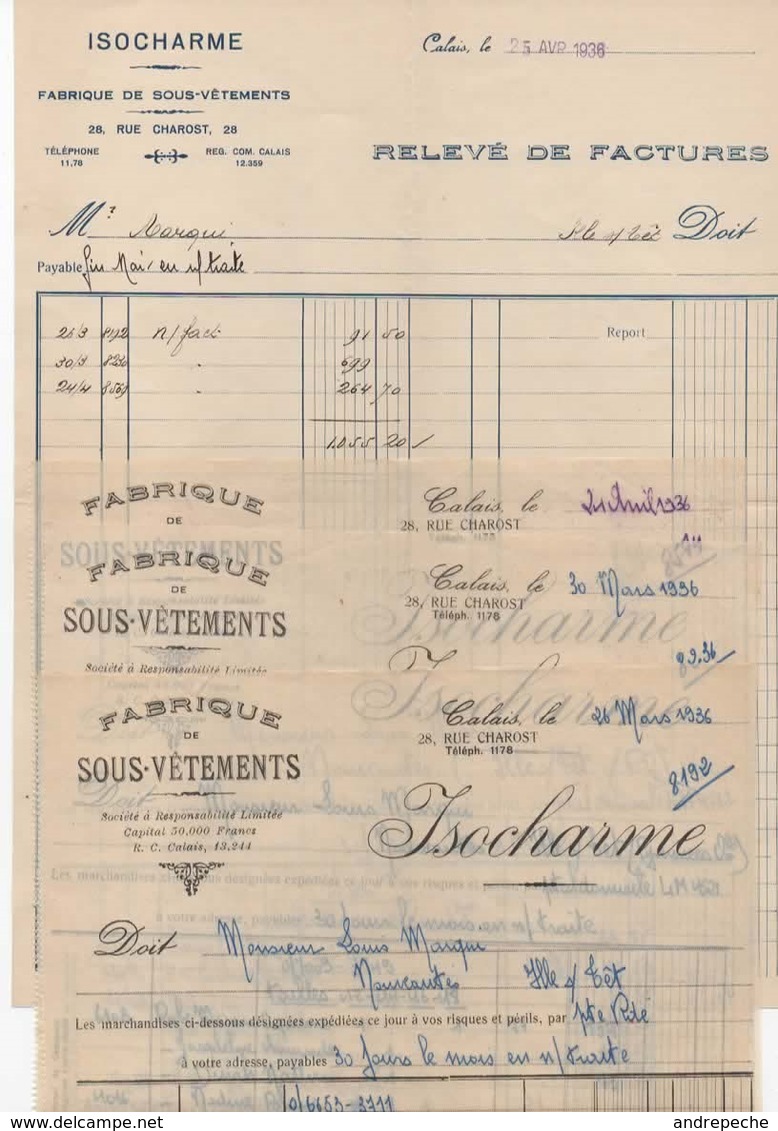 ISOCHARME
Calais, le 25 AVR 1936
FABRIQUE DE SOUS-VÊTEMENTS
28, RUE CHAROST, 28
TÉLÉPHONE
11,78
REG. COM. CALAIS
12.359
RELEVÉ DE FACTURES
Mr Marqui Ille s/ Têt Doit
Payable fin Mai en n/ traite
26/3 8192 n/ fact 91 50 Report
30/3 8236 " 699
24/4 8569 " 264 70
1.055 20
FABRIQUE
DE
SOUS-VÊTEMENTS
Calais, le 24 Avril 1936
28, RUE CHAROST
FABRIQUE
DE
SOUS-VÊTEMENTS
Société à Responsabilité Limitée
Calais, le 30 Mars 1936
28, RUE CHAROST
Téléph. 1178
8236
FABRIQUE
DE
SOUS-VÊTEMENTS
Société à Responsabilité Limitée
Capital 50.000 Francs
R. C. Calais, 13,244
Calais, le 26 Mars 1936
28, RUE CHAROST
Téléph. 1178
8192
Isocharme
Doit Monsieur Louis Marqui
Ille s/ Têt
Les marchandises ci-dessous désignées expédiées ce jour à vos risques et périls, par
à votre adresse, payables 30 jours le mois en n/ traite
0/6653-3711
andrepeche